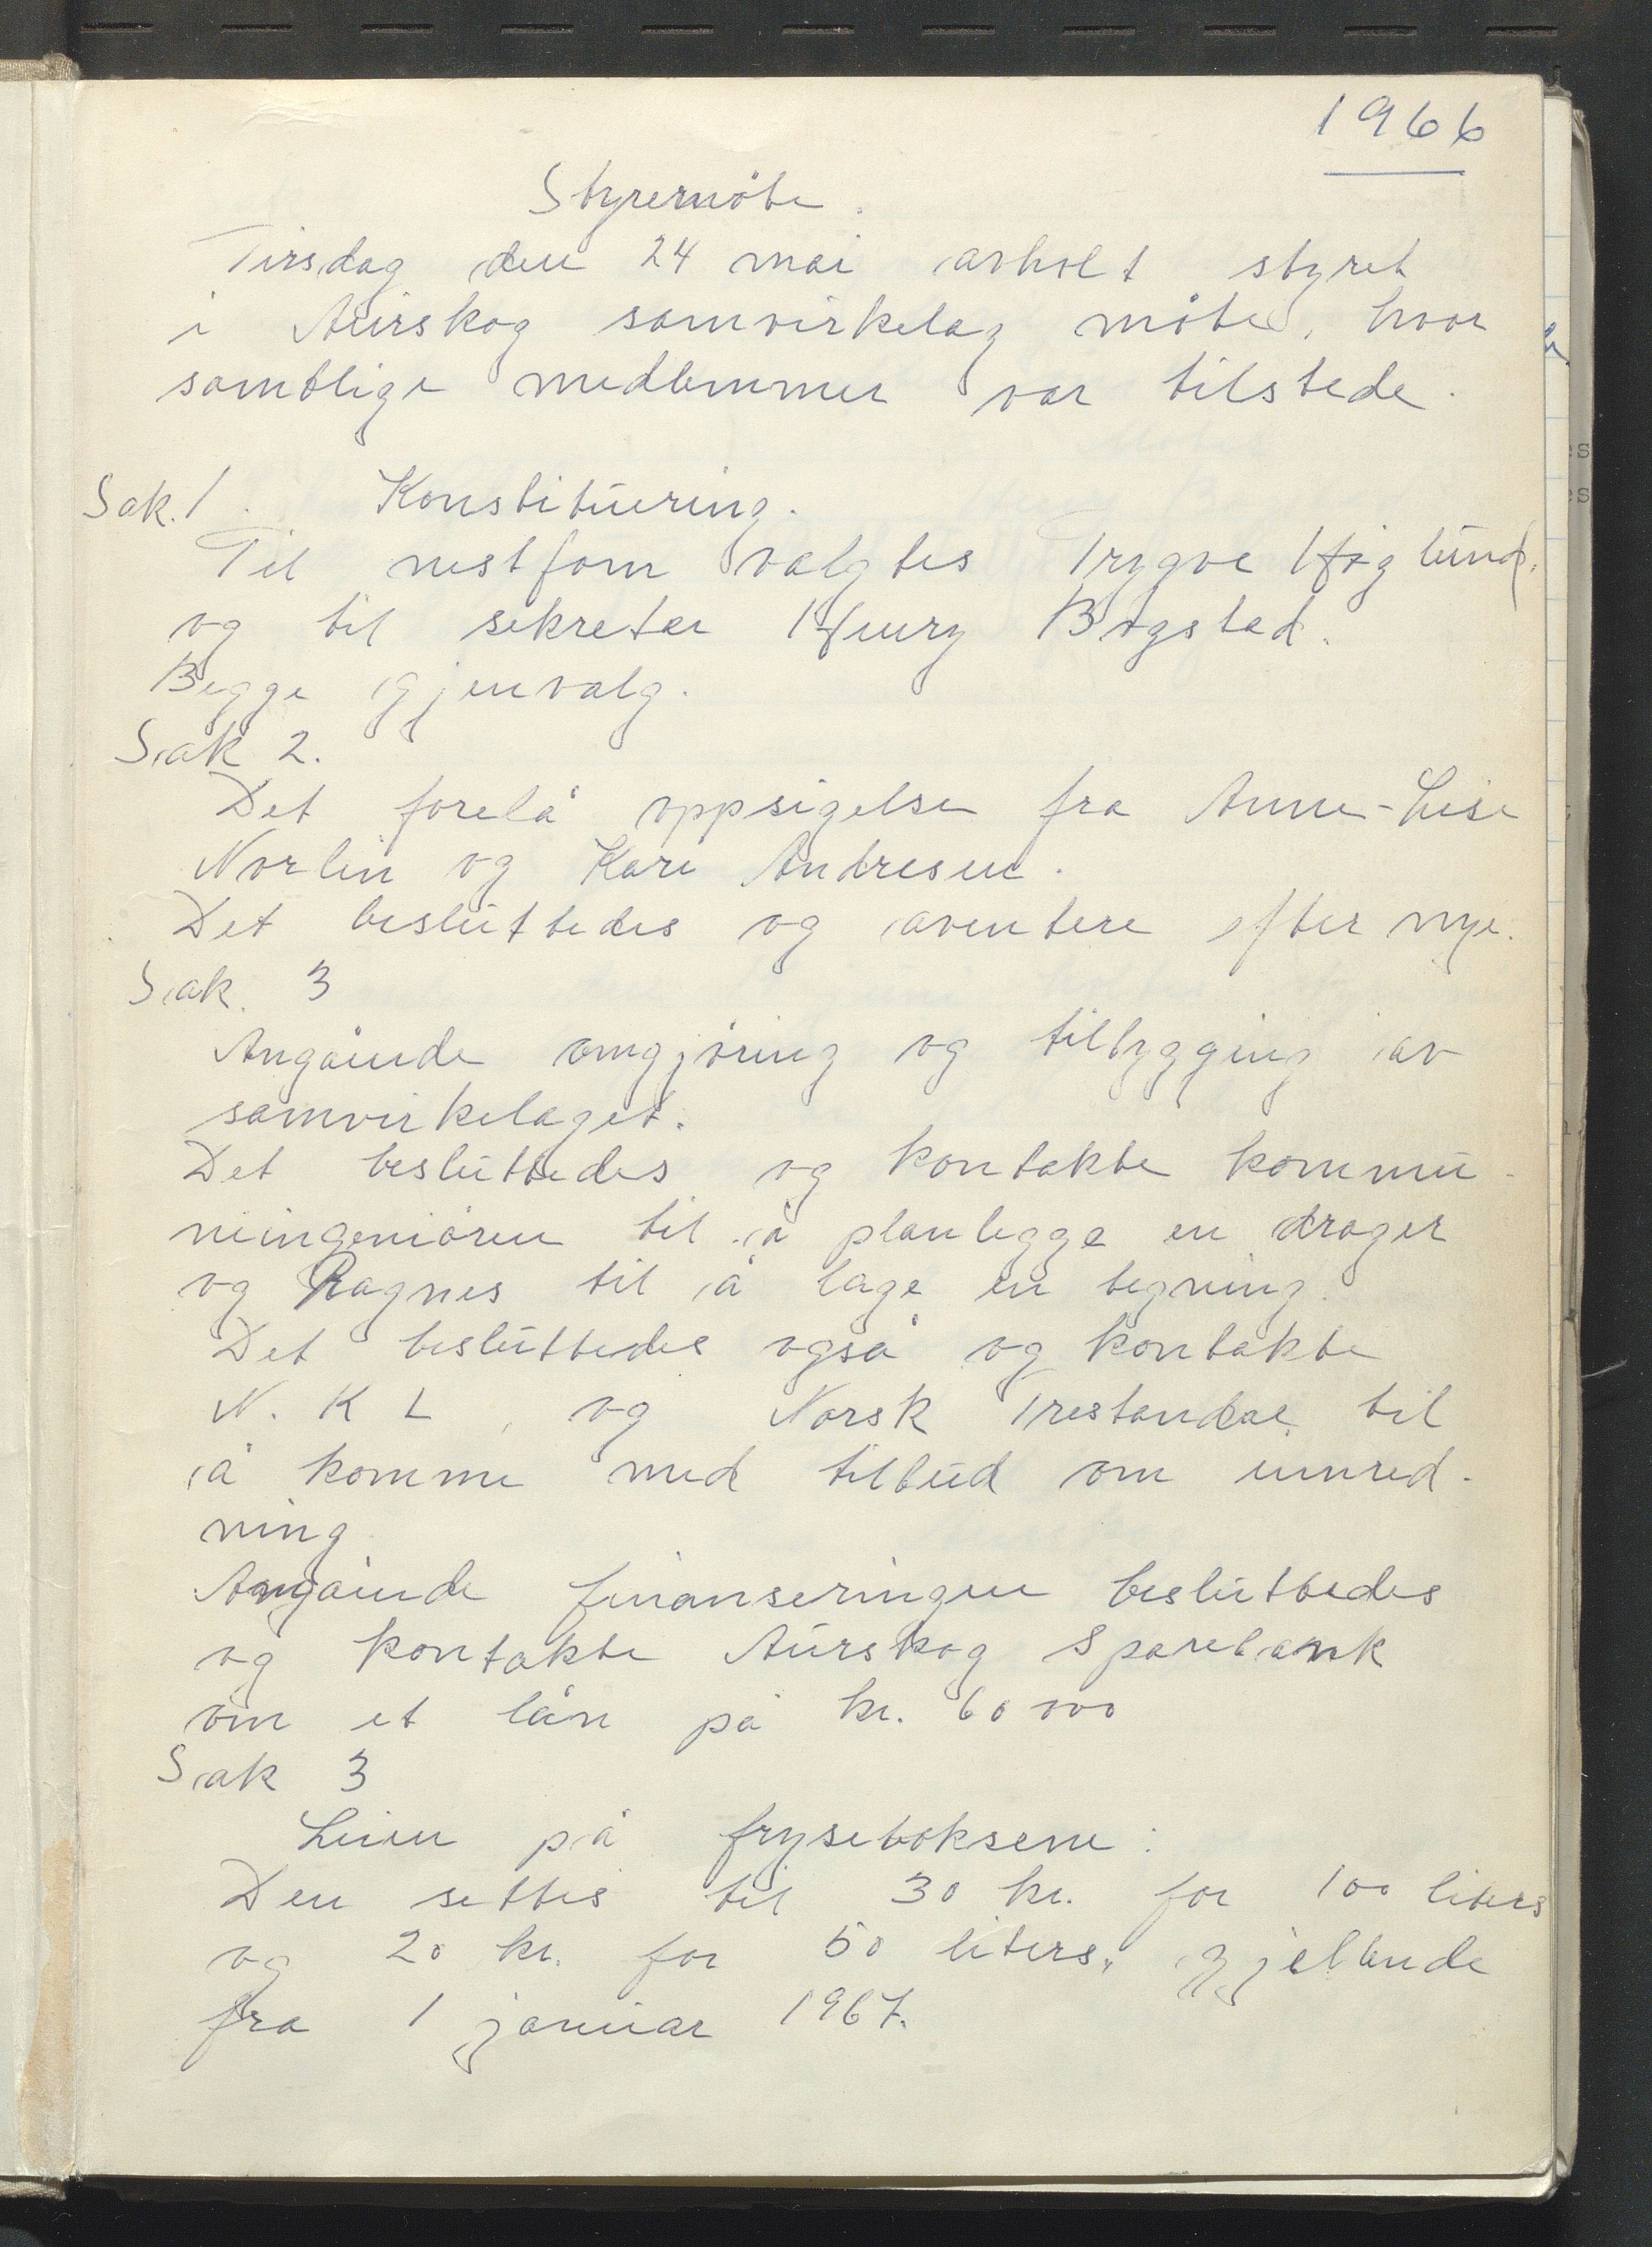 1966
Styremöte.
Tirsdag den 24 mai avholt styret
i Aurskog samvirkelag möte, hvor
samtlige medlemmer var tilstede.
Sak. 1. Konstituering.
Til nestform valgtes Trygve Höglund.
og til sekretær Henry Bogstad.
Begge gjenvalg.
Sak 2.
Det forelå oppsigelse fra Anne-Lise
Norlin og Kari Andresen.
Det besluttedes og aventere efter nye.
Sak. 3
Angående omgjöring og tilbygging av
samvirkelaget.
Det besluttedes og kontakte kommu-
neingeniören til å planlegge en drager
og Ragnes til å lage en tegning.
Det besluttedes også og kontakte
N. K L, og Norsk Trestandar til
å komme med tilbud om innred-
ning
Angående finanseringen besluttedes
og kontakte Aurskog Sparebank
om et lån på kr. 60 000
Sak 3
Leien på fryseboksene:
Den settes til 30 kr. for 100 liters
og 20 kr. for 50 liters, gjeldende
fra 1 januar 1967.